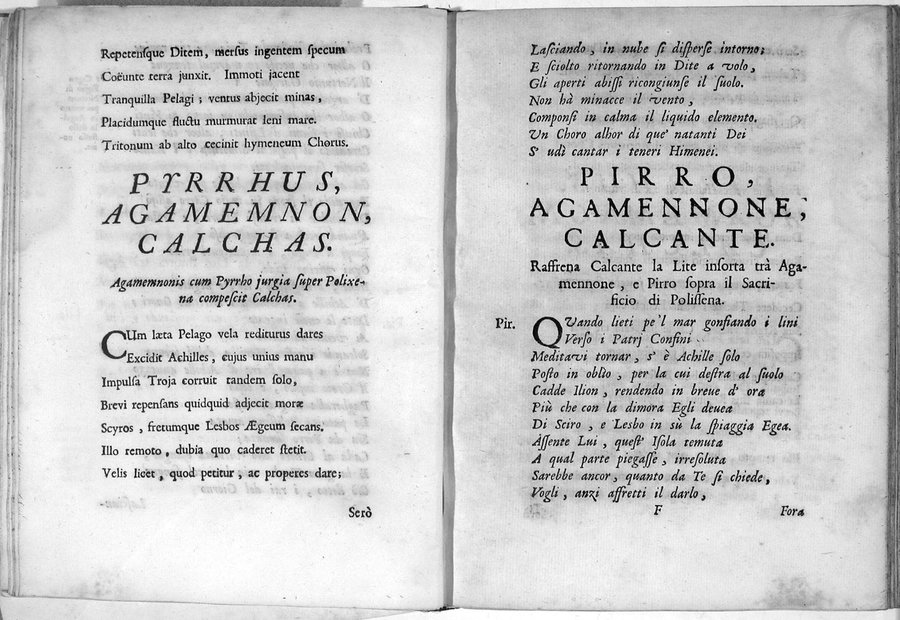 Repetenſque Ditem, merſus ingentem ſpecum
Coëunte terra junxit. Immoti jacent
Tranquilla Pelagi; ventus abjecit minas,
Placidumque fluctu murmurat leni mare.
Tritonum ab alto cecinit hymeneum Chorus.
PYRRHUS,
AGAMEMNON,
CALCHAS.
Agamemnonis cum Pyrrho jurgia ſuper Polixe-
na compeſcit Calchas.
CUm læta Pelago vela rediturus dares
Excidit Achilles, cujus unius manu
Impulſa Troja corruit tandem ſolo,
Brevi repenſans quidquid adjecit moræ
Scyros, fretumque Lesbos Ægeum ſecans.
Illo remoto, dubia quo caderet ſtetit.
Velis licet, quod petitur, ac properes dare;
Serò
Laſciando, in nube ſi diſperſe intorno;
E ſciolto ritornando in Dite a volo,
Gli aperti abiſſi ricongiunſe il ſuolo.
Non hà minacce il vento,
Componſi in calma il liquido elemento.
Un Choro alhor di que' natanti Dei
S' udì cantar i teneri Himenei.
PIRRO,
AGAMENNONE,
CALCANTE.
Raffrena Calcante la Lite inſorta trà Aga-
mennone, e Pirro ſopra il Sacri-
ficio di Poliſſena.
Pir. QVando lieti pe'l mar gonfiando i lini
Verſo i Patrj Confini
Meditavi tornar, s' è Achille ſolo
Poſto in oblìo, per la cui deſtra al ſuolo
Cadde Ilion, rendendo in breue d' ora
Più che con la dimora Egli deuea
Di Sciro, e Lesbo in sù la ſpiaggia Egea.
Aſſente Lui, queſt' Iſola temuta
A qual parte piegaſſe, irreſoluta
Sarebbe ancor, quanto da Te ſi chiede,
Vogli, anzi affretti il darlo,
F
Fora